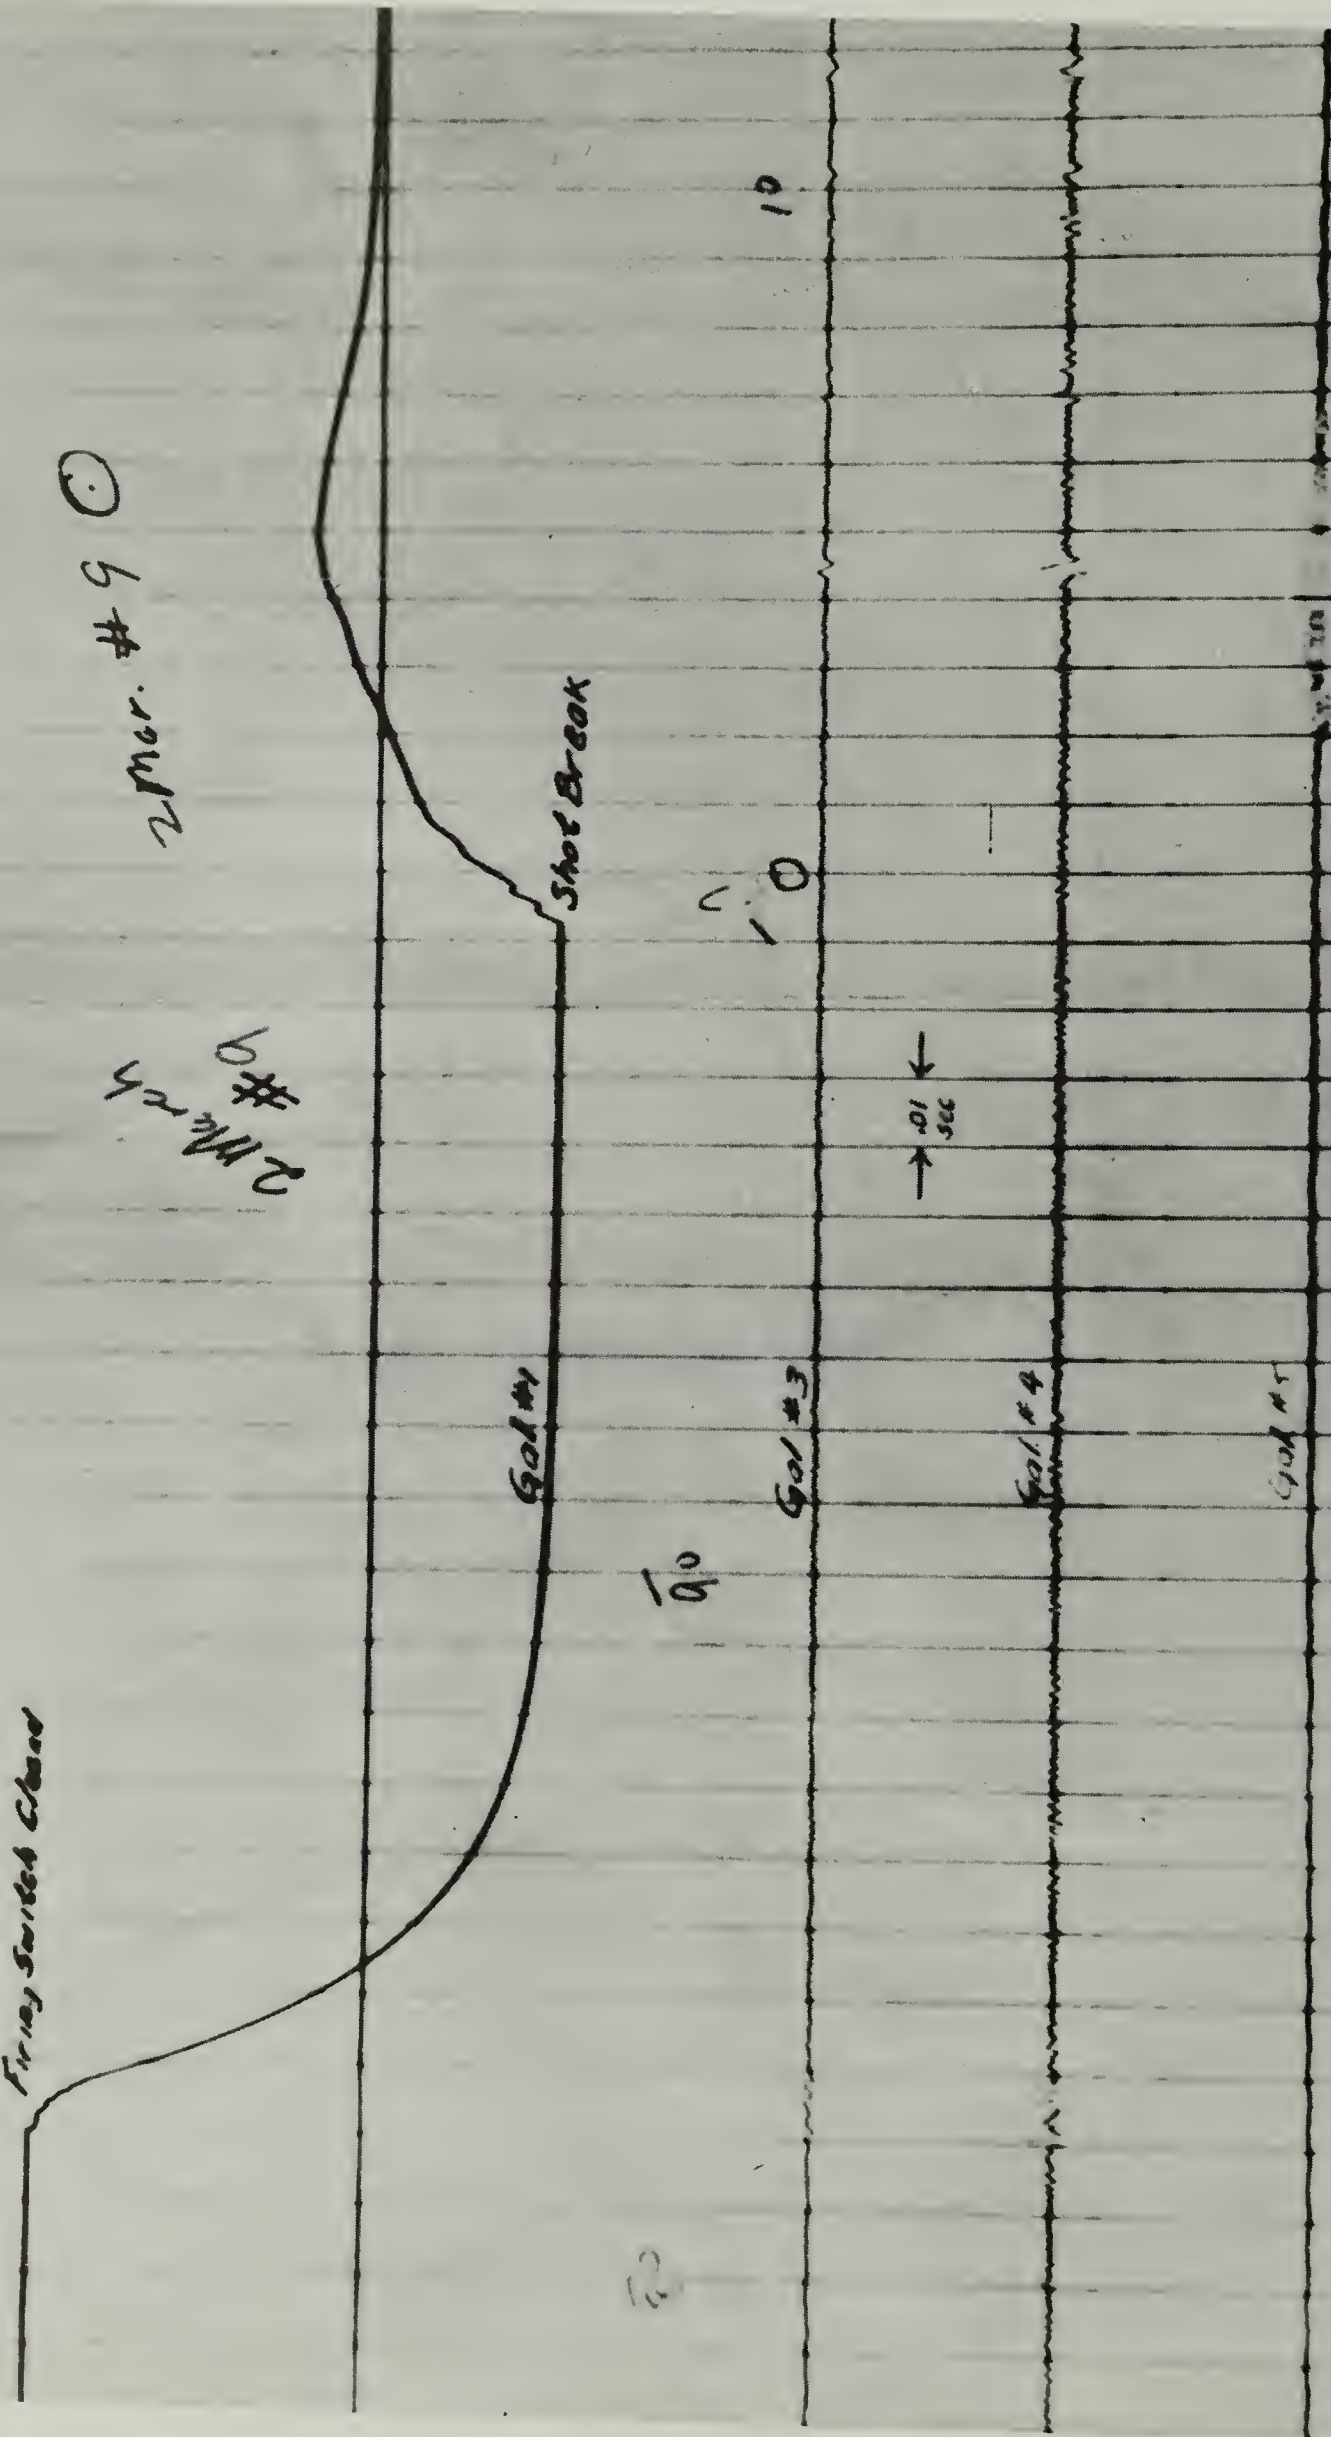 Firing Switch Closed
2 Mar. # 9
2 March
# 9
Shot Break
Gal #1
Gal #3
Gal. #4
Gal #5
.01
sec
10
0